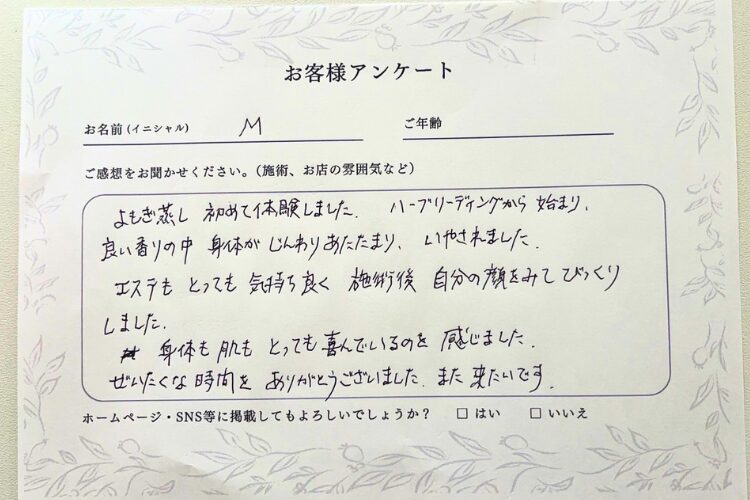 お客様アンケート
お名前(イニシャル) M ご年齢
ご感想をお聞かせください。(施術、お店の雰囲気など)
よもぎ蒸し 初めて体験しました. ハーブリーディングから 始まり、
良い香りの中 身体が じんわりあたたまり、いやされました.
エステも とっても 気持ち良く 施術後 自分の顔をみて びっくり
しました.
身体も 肌も とっても 喜んでいるのを 感じました.
ぜいたくな 時間を ありがとうございました. また 来たいです.
ホームページ・SNS等に掲載してもよろしいでしょうか? □ はい □ いいえ